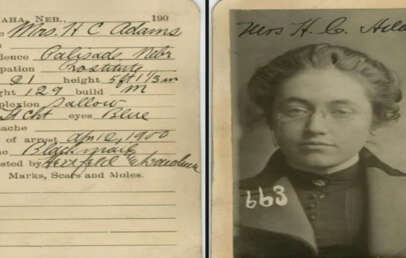 AHA, NEB., 190
Mrs. H C Adams
dence Palisade Nebr
pation Prostitute
21 height 5 ft 1 1/3 in
ght 129 build M
plexion Sallow
Licht eyes Blue
tache
of arrest Apr 12, 1900
Blackmail
sted by
Marks, Scars and Moles.
Mrs H. C. Ada
663